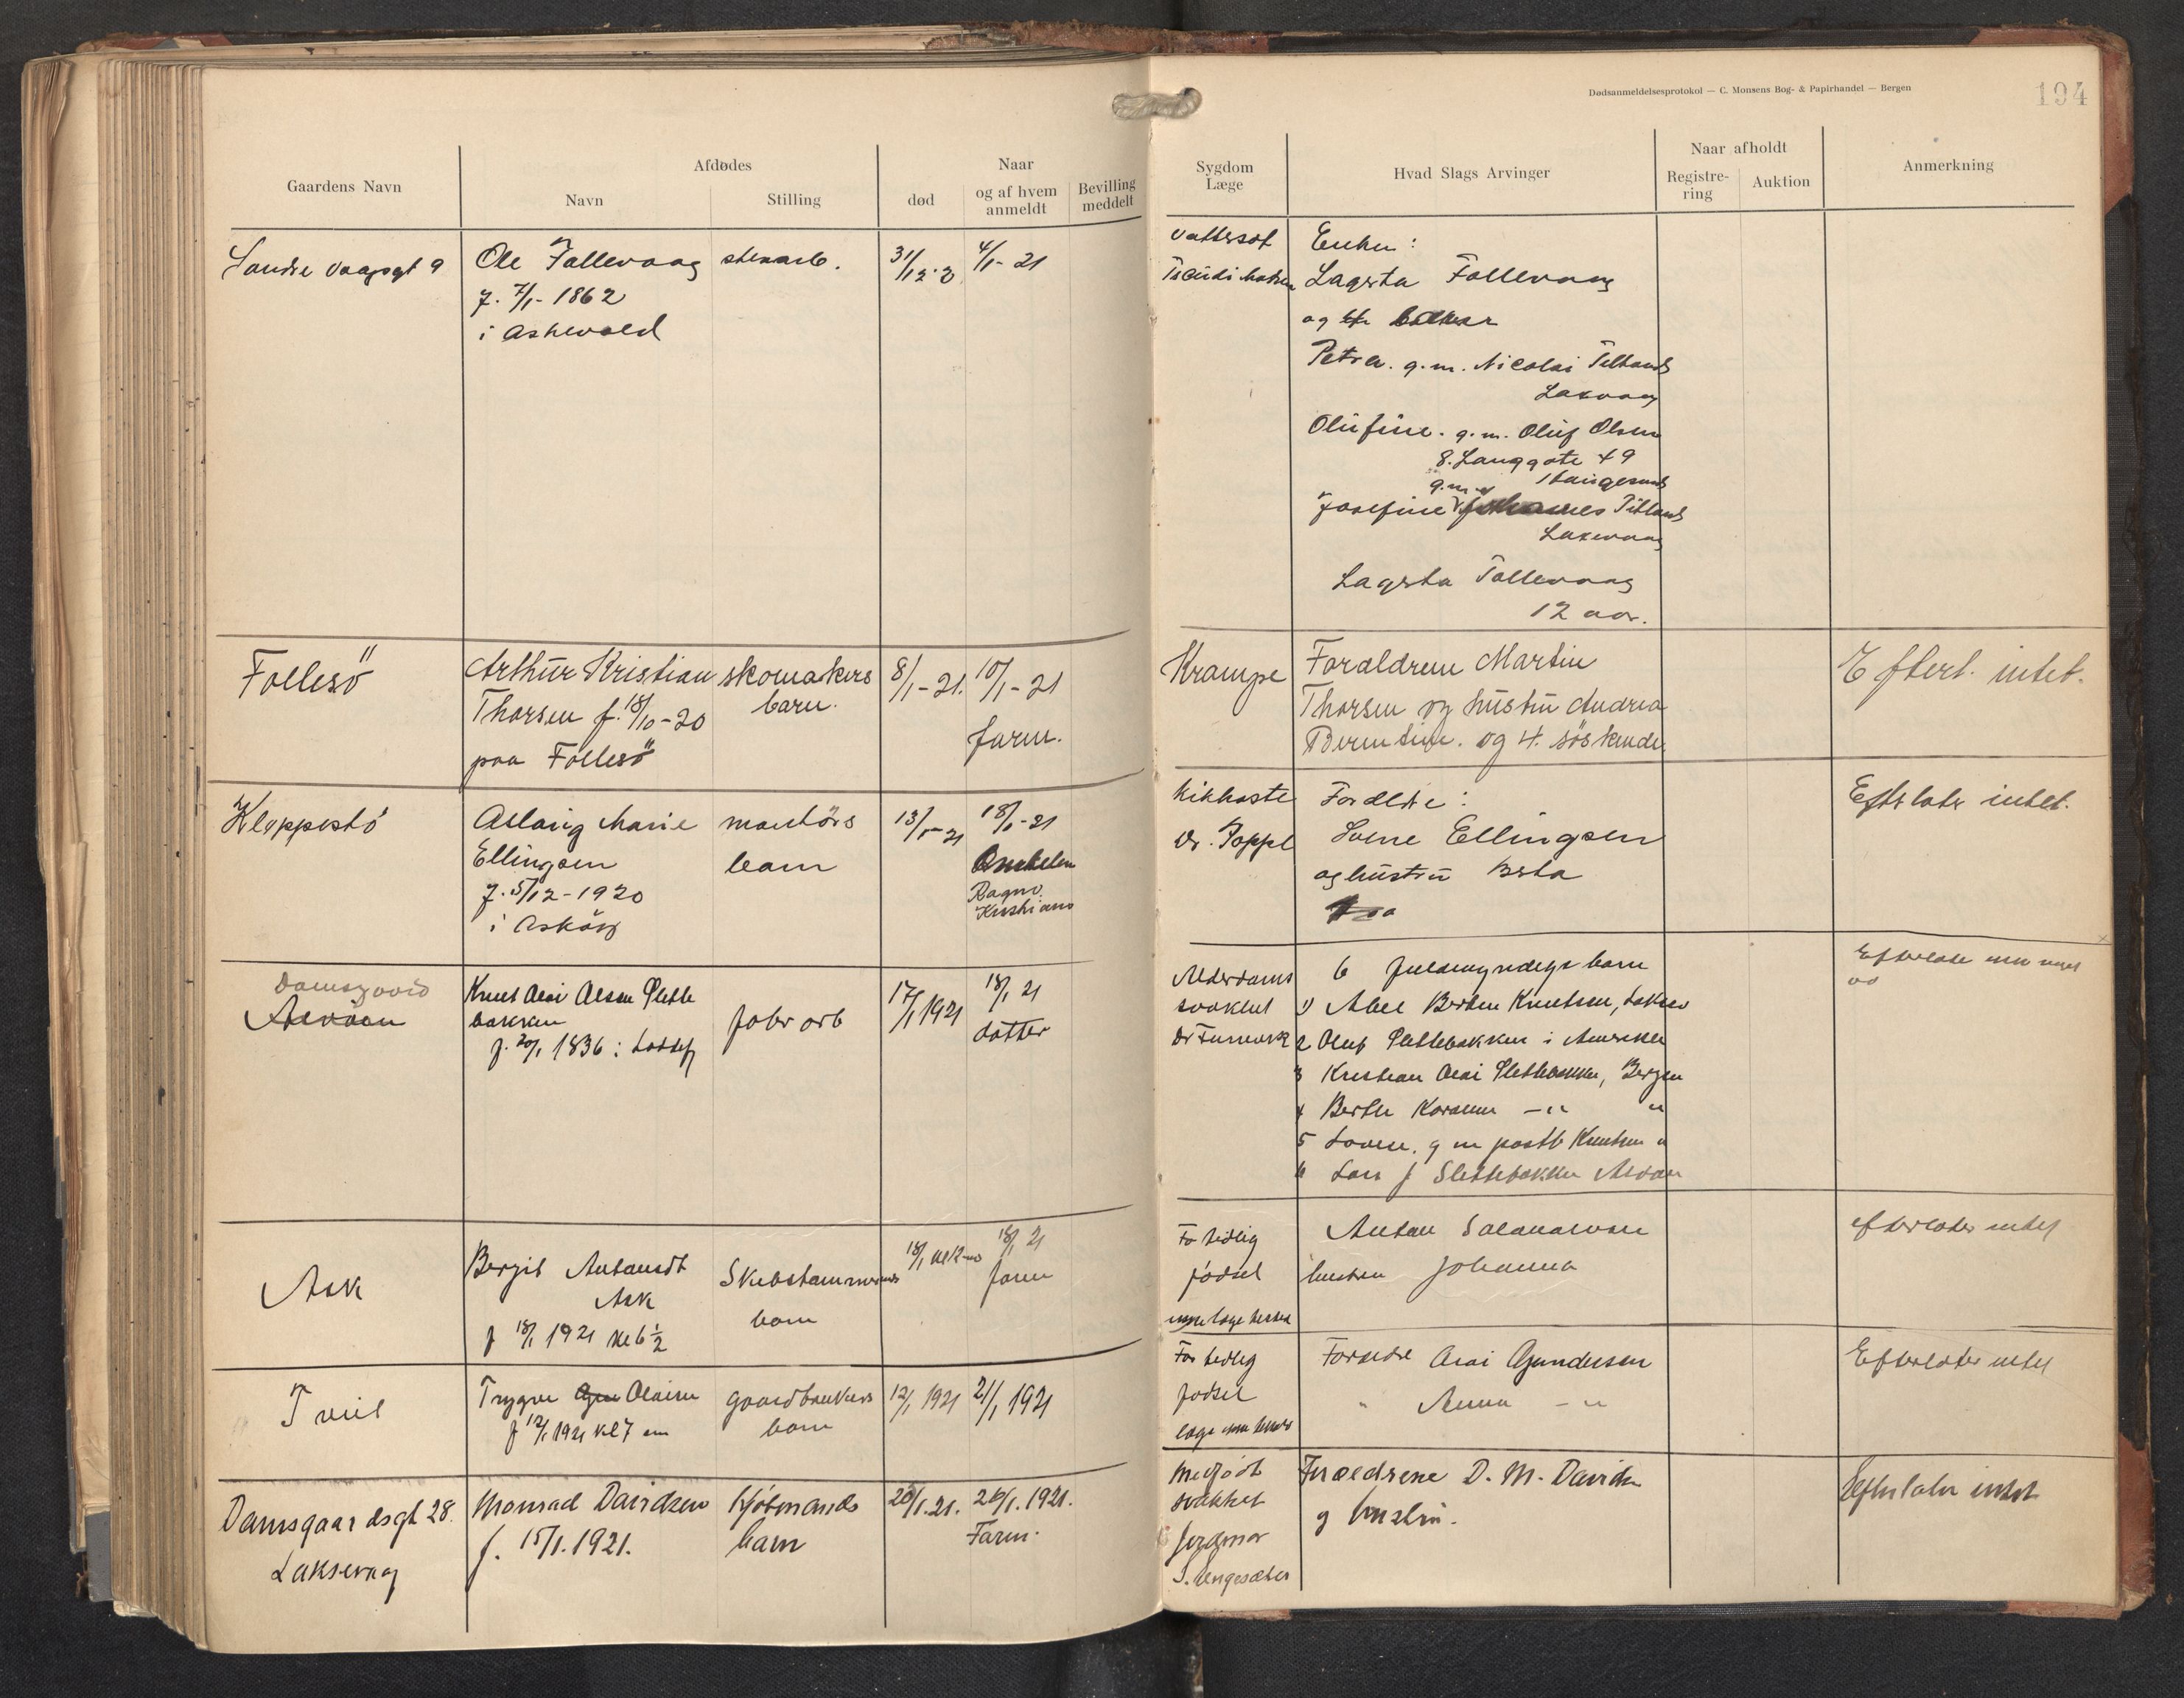 Dødsanmeldelsesprotokol — C. Monsens Bog- & Papirhandel — Bergen
194
Gaardens Navn
Afdødes
Navn
Stilling
Naar
død
og af hvem anmeldt
Bevilling meddelt
Sygdom
Læge
Hvad Slags Arvinger
Naar afholdt
Registre-
ring
Auktion
Anmerkning
Søndre Vaagsgt 9
Ole Follevaag
f. 7/1- 1862
i Askevold
stenarb.
31/12-20
4/1- 21
Vattersot
Enken:
Lagerta Follevaag
og
Petra. g.m. Nicolai
Laxevaag
Olufine. g.m. Oluf Olsen
S. Langgate 49
Haugesund
g.m.
Josefine Johannes
Laxevaag
Lagerta Follevaag
12 aar.
Follesö
Arthur Kristian
Thorsen f. 18/10-20
paa Follesö
skomakers
barn.
8/1-21.
10/1-21
farm.
Krampe
Foraldrene Martin
Thorsen og hustru Andrea
Berentine. og 4. söskende
Efterl. intet.
Kleppestö
Aslaug Marie
Ellingsen
f. 5/12-1920
i Asköy
montörs
barn
13/1-21
18/1-21
Onkelen
Ragnv.
Kristians
Kikhoste
Dr. Joppe
Foreldre:
Sverre Ellingsen
og hustru Berta
Efterlater intet.
Damsgaard
Alvöen
Knut Olai Olsen Slette
bakken
f. 20/1 1836 i
Fabr arb
17/1 1921
18/1 21
datter
Alderdoms
svakhet
6 fuldmyndige barn
1) Abel Bertin Knutsen, Laksev
2 Oluf Slettebakken i Amerika
3 Kristian Olai Slettebakken, Bergen
4 Berthe Karoline -"- "
5 Lovise. g m postb Knutsen "
6 Lars J Slettebakken Alvöen
Ask
Bergit Antonsdt
Ask
f 18/1 1921 kl 6 1/2
barn
18/1
18/1 21
farm
For tidlig
födsel
Anton Salamonsen
hustru Johanna
efterlater intet
Tveit
Trygve Olaisen
f 12/1 1921 kl 7 em
gaardbrukers
barn
12/1 1921
21/1 1921
For tidlig
födsel
Foreldre Olai Gundersen
" Anna - "
Efterlater intet
Damsgaardsgt 28.
Laksevaag
Monrad Davidsen
f. 15/1. 1921.
Kjöbmands
barn
20/1. 21.
26/1. 1921.
Farm.
Medfödt
svakhet
Jordmor
S. Ungesæter
Forældrene D. M. Davidsen
og hustru.
Efterlater intet